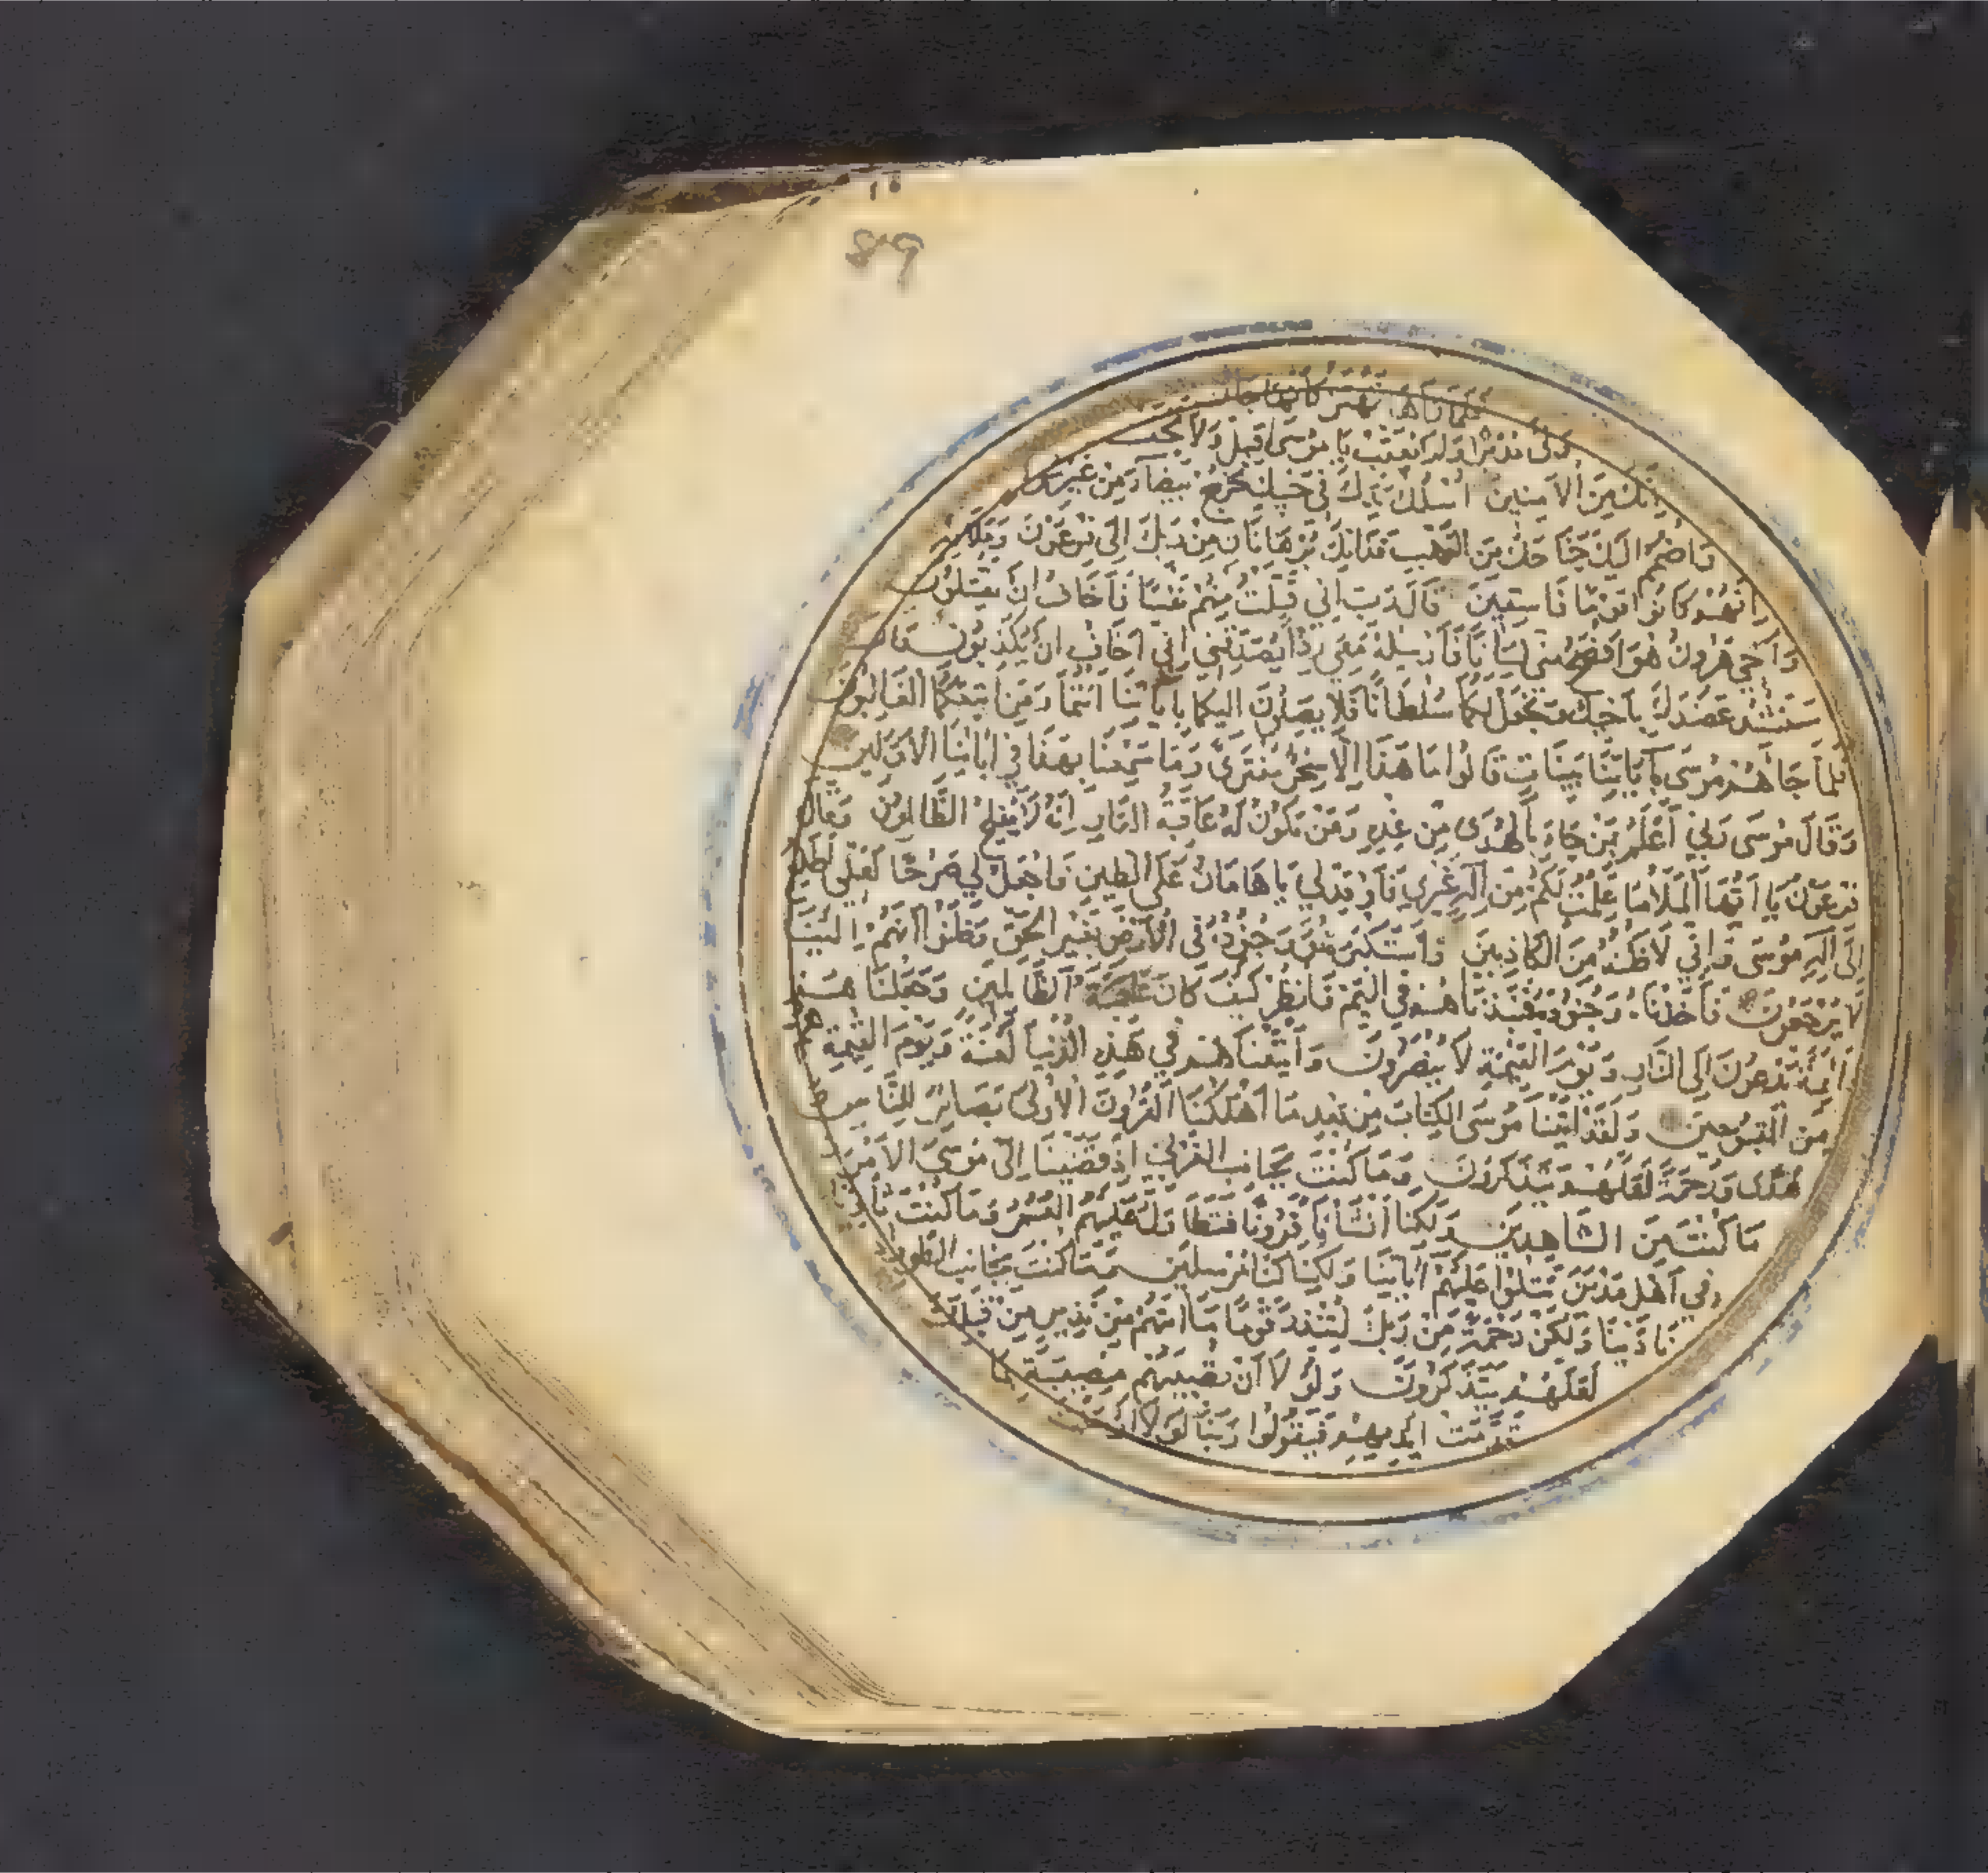 89
فلما رآها تهتز كأنها جان
ولى مدبرا ولم يعقب يا موسى اقبل ولا تخف
انك من الآمنين اسلك يدك في جيبك تخرج بيضاء من غير
واضمم اليك جناحك من الرهب فذانك برهانان من ربك الى فرعون وملائه
انهم كانوا قوما فاسقين قال رب اني قتلت منهم نفسا فاخاف ان يقتلون
واخي هرون هو افصح مني لسانا فارسله معي ردا يصدقني اني اخاف ان يكذبون قال
سنشد عضدك باخيك ونجعل لكما سلطانا فلا يصلون اليكما باياتنا انتما ومن اتبعكما الغالبون
فلما جاءهم موسى باياتنا بينات قالوا ما هذا الا سحر مفترى وما سمعنا بهذا في ابائنا الاولين
وقال موسى ربي اعلم بمن جاء بالهدى من عنده ومن تكون له عاقبة الدار انه لا يفلح الظالمون وقال
فرعون يا ايها الملأ ما علمت لكم من اله غيري فاوقد لي يا هامان على الطين فاجعل لي صرحا لعلي اطلع
الى اله موسى واني لاظنه من الكاذبين واستكبر هو وجنوده في الارض بغير الحق وظنوا انهم الينا
لا يرجعون فاخذناه وجنوده فنبذناهم في اليم فانظر كيف كان عاقبة الظالمين وجعلناهم
ائمة يدعون الى النار ويوم القيمة لا ينصرون واتبعناهم في هذه الدنيا لعنة ويوم القيمة هم
من المقبوحين ولقد اتينا موسى الكتاب من بعد ما اهلكنا القرون الاولى بصائر للناس
هدى ورحمة لعلهم يتذكرون وما كنت بجانب الغربي اذ قضينا الى موسى الامر
ما كنت من الشاهدين ولكنا انشأنا قرونا فتطاول عليهم العمر وما كنت ثاويا
في اهل مدين تتلوا عليهم اياتنا ولكنا كنا مرسلين وما كنت بجانب الطور
نادينا ولكن رحمة من ربك لتنذر قوما ما اتيهم من نذير من قبلك
لعلهم يتذكرون ولولا ان تصيبهم مصيبة بما
قدمت ايديهم فيقولوا ربنا لولا ارسلت